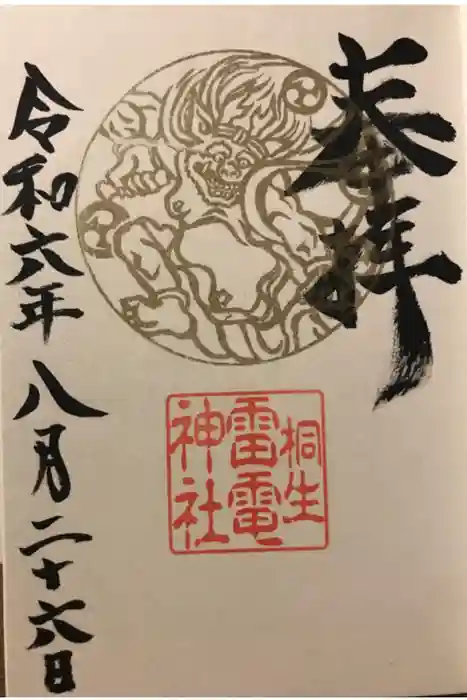 奉拝
桐生
雷電
神社
令和六年八月二十六日